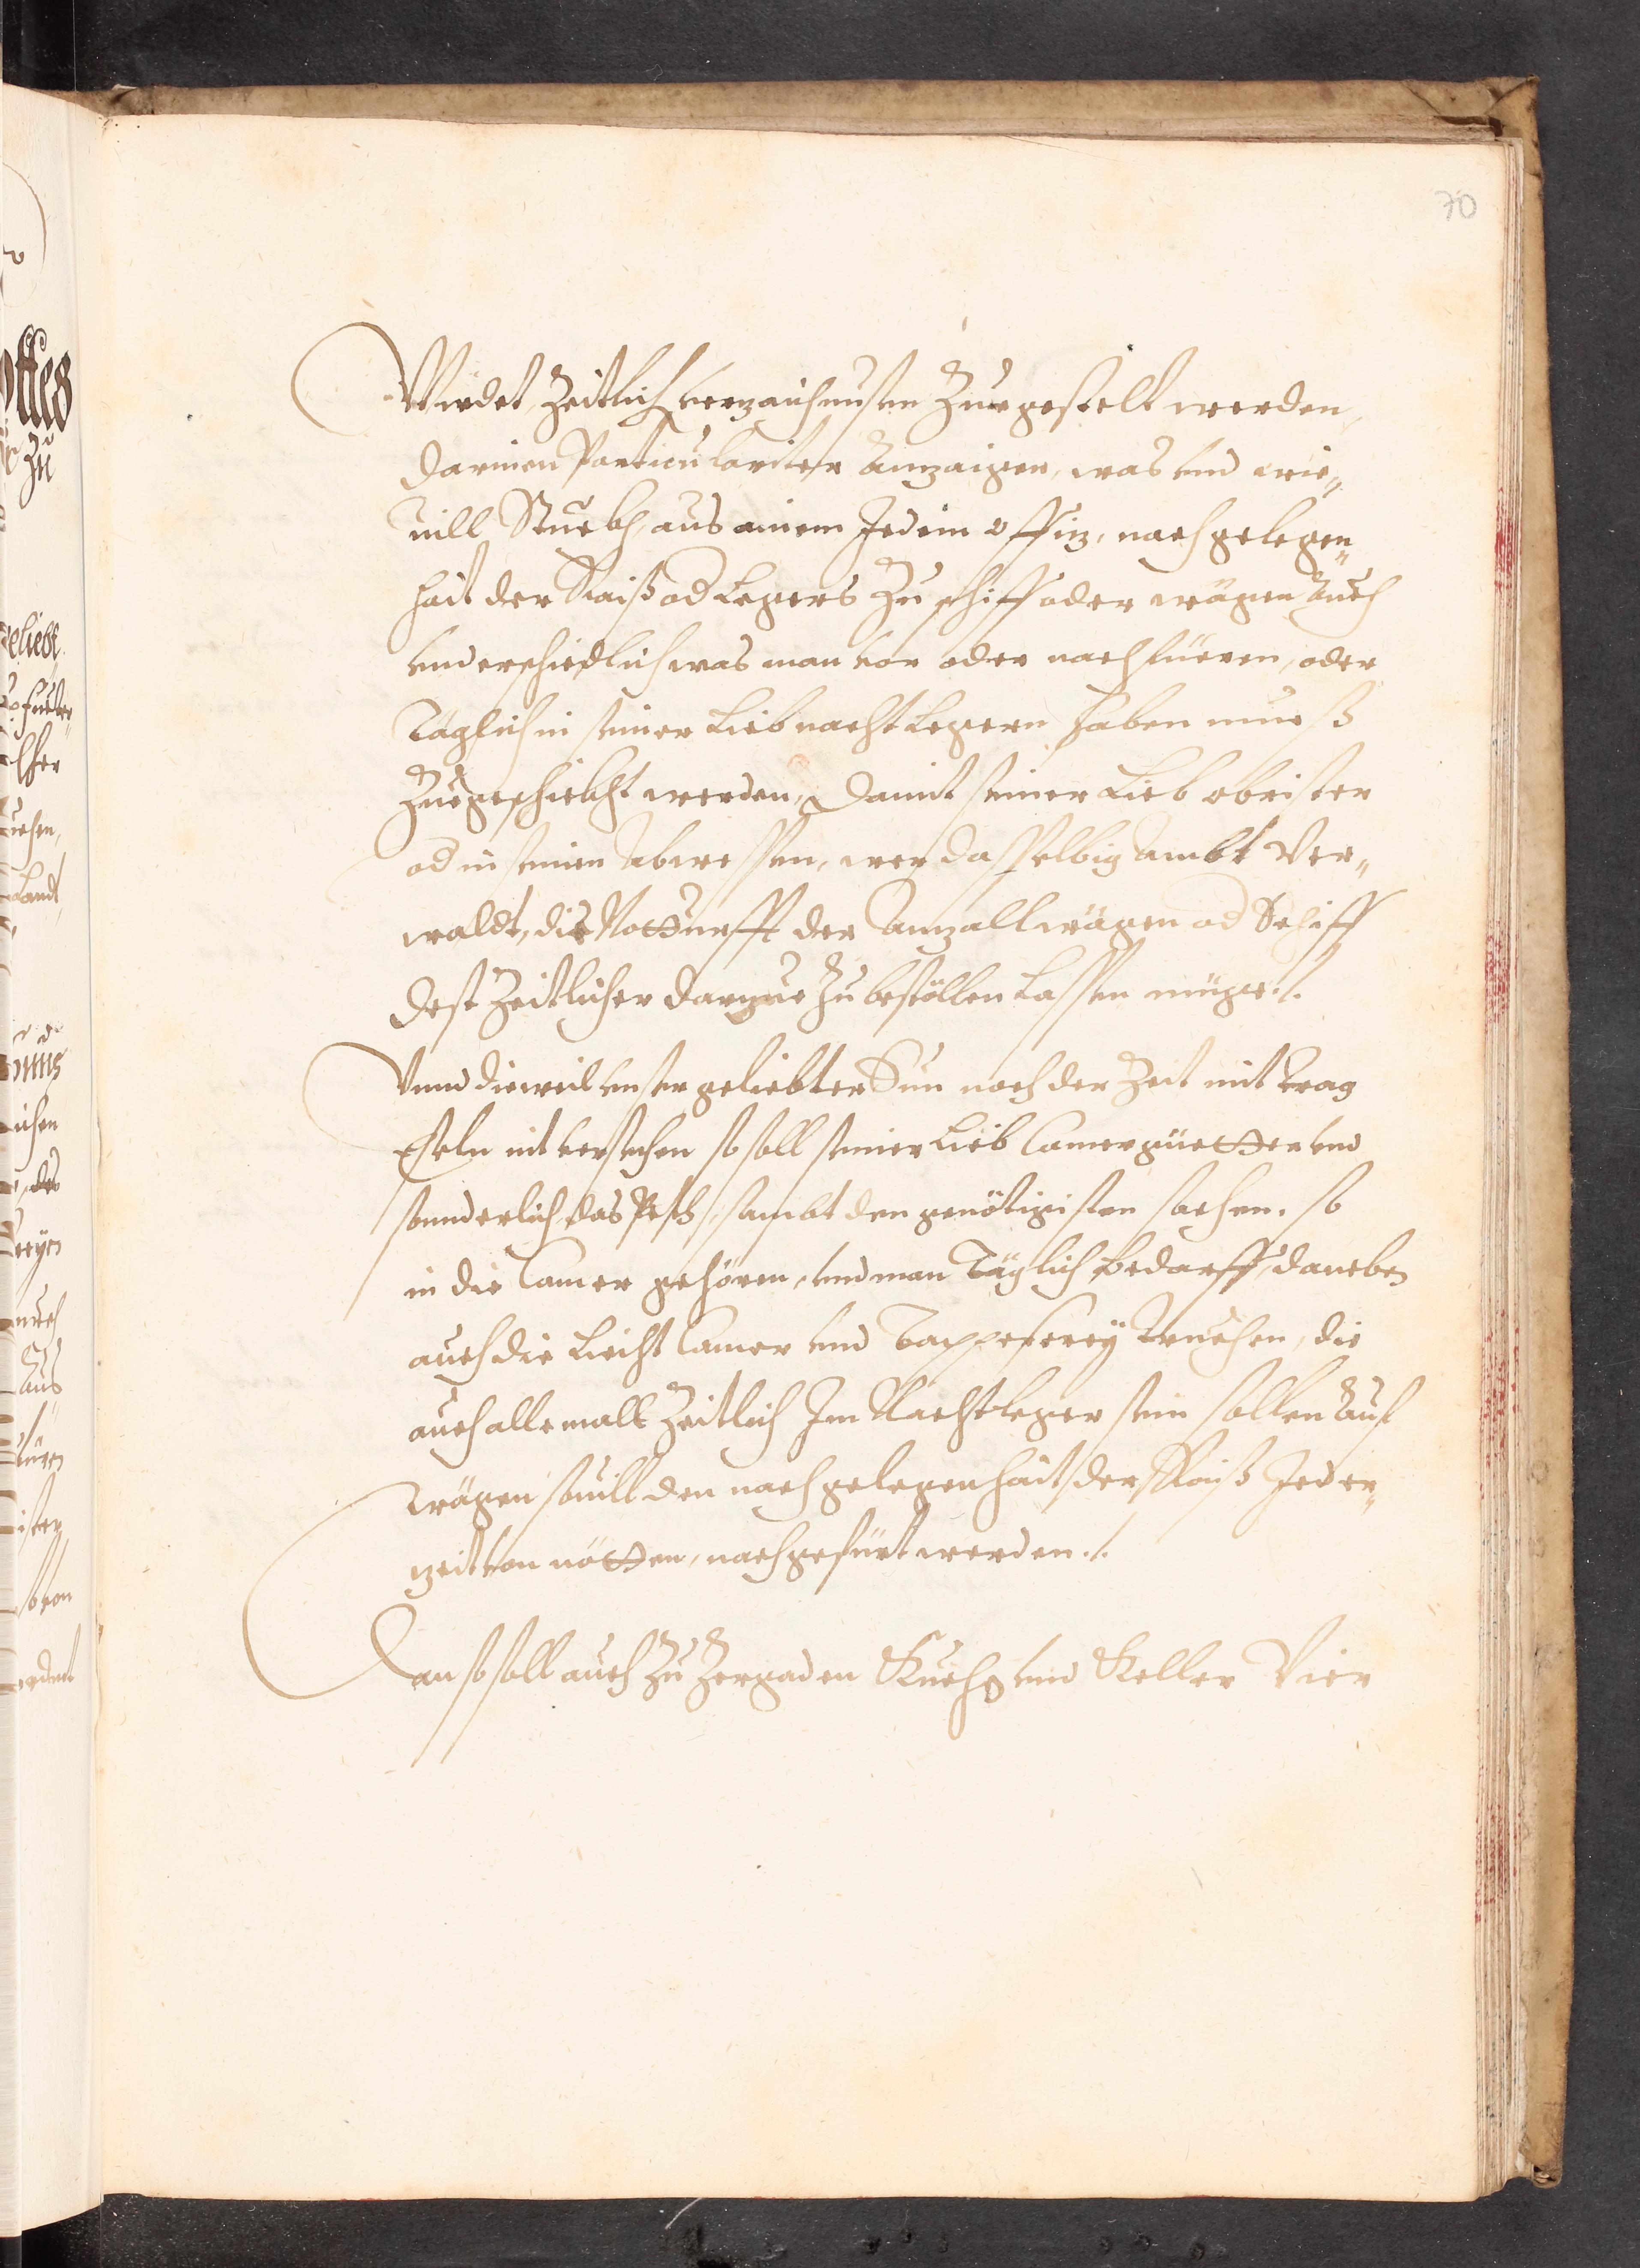 70
Wirdet, Zeitlich verzaichnussen Zuegestelt werden,
darinnen Particulariter Anzaigen, was vnd wie„
uill Stuckh, aus ainem Jedem offitz, nach gelegen„
hait der Raiß od Legers Zu schiff oder wägen Auch
vnderschidlich was man vor oder nach füeren, oder
Täglich in seiner Lieb nacht Legern haben mueß
Zuegeschickht werden, Damit seiner Lieb obrister
od in seinen Abwessen, wer dasselbig Ambt Ver„
waldt, die Notturfft der Anzall wägen od Schiff
dest Zeitlicher darzue Zu bestöllen Lassen müge./.
Vnnd dieweil vnser geliebter Sun noch der Zeit mit Trag
Eseln nit versehen so soll seiner Lieb Camergüetter vnd
sonnderlich das Peth, sambt den genötigisten sachen, so
in die Camer gehören, vnd man Täglich bedarff, daneben
auch die Liecht Camer vnd Tappeserey Truchen, die
auch allemall Zeitlich Im Nachtleger sein sollen Auf
Wägen souill den nach gelegenhait der Raiß Jeder„
zeit von nötten, nachgefürt werden./.
Dan so soll auch Zu Zergaden Kuchen vnd Keller Vier